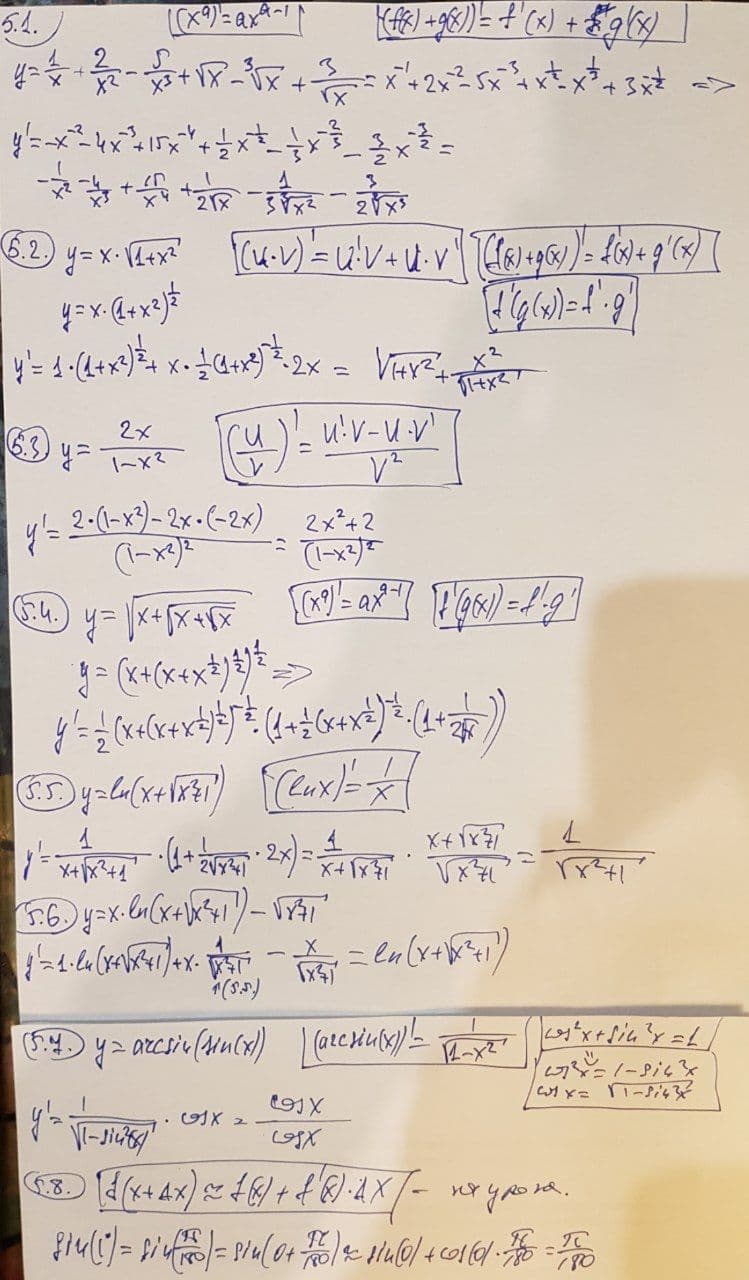 5.1. (xᵃ)' = axᵃ⁻¹ (f(x)+g(x))' = f'(x) + g'(x)
y = 1/x + 2/x² - 5/x³ + √x - ³√x + 3/√x = x⁻¹ + 2x⁻² - 5x⁻³ + x^(1/2) - x^(1/3) + 3x^(-1/2) =>
y' = -x⁻² - 4x⁻³ + 15x⁻⁴ + 1/2 x^(-1/2) - 1/3 x^(-2/3) - 3/2 x^(-3/2) =
-1/x² - 4/x³ + 15/x⁴ + 1/(2√x) - 1/(3 ³√x²) - 3/(2√x³)
5.2. y = x·√(1+x²) (u·v)' = u'v + u·v' (f(x)+g(x))' = f'(x) + g'(x)
y = x·(1+x²)^(1/2) f'(g(x)) = f'·g'
y' = 1·(1+x²)^(1/2) + x·1/2(1+x²)^(-1/2)·2x = √(1+x²) + x²/√(1+x²)
5.3 y = 2x/(1-x²) (u/v)' = (u'v - u·v')/v²
y' = (2·(1-x²) - 2x·(-2x))/(1-x²)² = (2x²+2)/(1-x²)²
5.4. y = √(x+√(x+√x)) (xᵃ)' = axᵃ⁻¹ f'(g(x)) = f'·g'
y = (x+(x+x^(1/2))^(1/2))^(1/2) =>
y' = 1/2 (x+(x+x^(1/2))^(1/2))^(-1/2)·(1+1/2(x+x^(1/2))^(-1/2)·(1+1/(2√x)))
5.5. y = ln(x+√(x²+1)) (lnx)' = 1/x
y' = 1/(x+√(x²+1))·(1+1/(2√(x²+1))·2x) = 1/(x+√(x²+1))·(x+√(x²+1))/√(x²+1) = 1/√(x²+1)
5.6. y = x·ln(x+√(x²+1)) - √(x²+1)
y' = 1·ln(x+√(x²+1)) + x·1/√(x²+1) - x/√(x²+1) = ln(x+√(x²+1))
↑(5.5.)
5.7. y = arcsin(sin(x)) (arcsin(x))' = 1/√(1-x²) cos²x + sin²x = 1
cos²x = 1 - sin²x
cosx = √(1-sin²x)
y' = 1/√(1-sin²(x))·cosx = cosx/cosx
5.8. f(x+Δx) ≈ f(x) + f'(x)·Δx -
sin(1°) = sin(π/180) = sin(0+π/180) ≈ sin(0) + cos(0)·π/180 = π/180